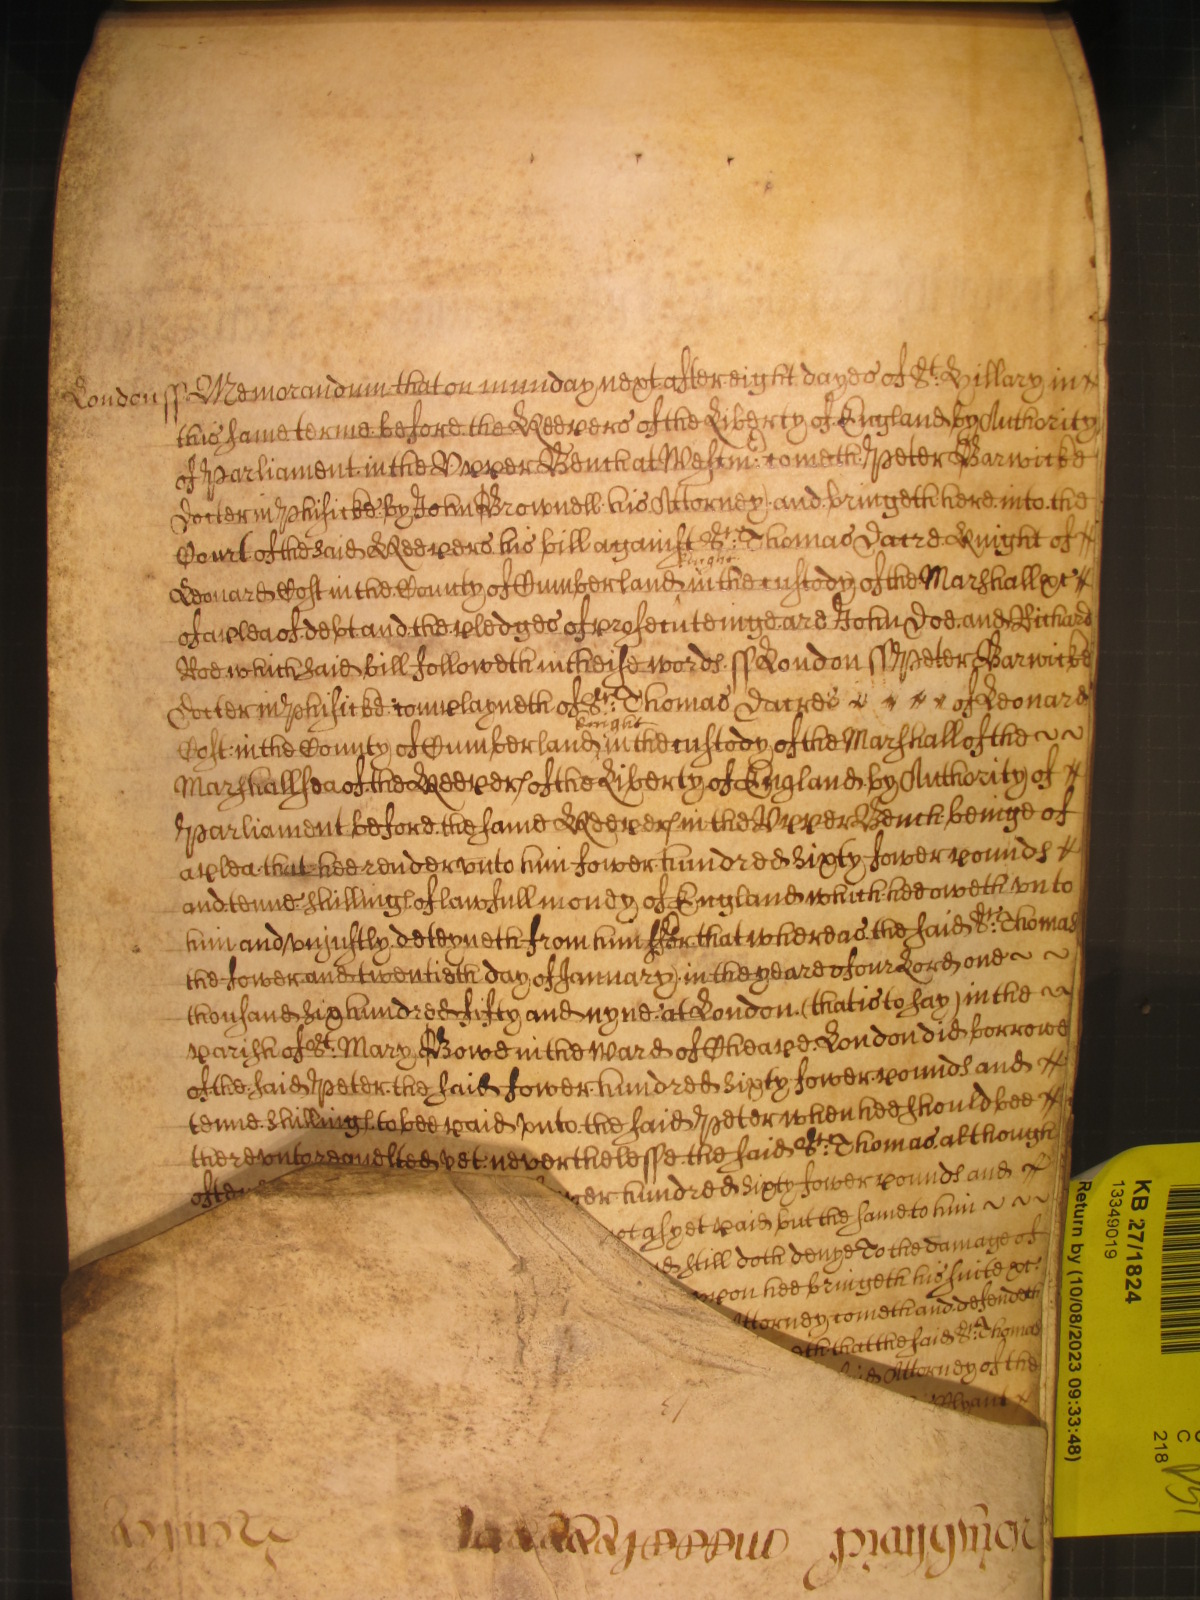 London ss Memorandum that on munday next after eight dayes of St. Hillary in
this same terme before the Keepers of the Liberty of England by Authority
of Parliament in the Vpper Bench at Westm: cometh Peter Barwicke
Docter in Phisicke by John Brownell his Attorney and bringeth here into the
Court of the said Keepers his bill against Sr. Thomas Dacre Knight of
knight
Leonard Cost in the County of Cumberland in the custody of the Marshall &c
of a plea of debt and the pledges of prosecuteinge are John Doe and Richard
Roe which said bill followeth in theise words ss London ss Peter Barwicke
Docter in Phisicke complayneth of Sr. Thomas Dacre of Leonard
knight
Cost in the County of Cumberland in the custody of the Marshall of the
Marshallsea of the Keepers of the Liberty of England by Authority of
Parliament before the same Keepers in the Vpper Bench beinge of
a plea that hee render vnto him fower hundred sixty fower pounds
and tenne shillings of lawfull money of England which hee oweth vnto
him and vnjustly deteyneth from him ffor that whereas the said Sr. Thomas
the fower and twentieth day of January in the yeare of our Lord one
thousand six hundred fifty and nyne at London (that is to say) in the
parish of St. Mary Bowe in the Ward of Cheape London did borrowe
of the said Peter the said fower hundred sixty fower pounds and
tenne shillings to bee paid vnto the said Peter when hee should bee
therevnto requested yet neverthelesse the said Sr. Thomas although
often
hundred sixty fower pounds and
as yet paid but the same to him
still doth denye To the damage of
hee bringeth his suite &c.
Attorney cometh and defendeth
that the said Sr. Thomas
Attorney of the
KB 27/1824
13349019
Return by (10/08/2023 09:33:48)
C
218